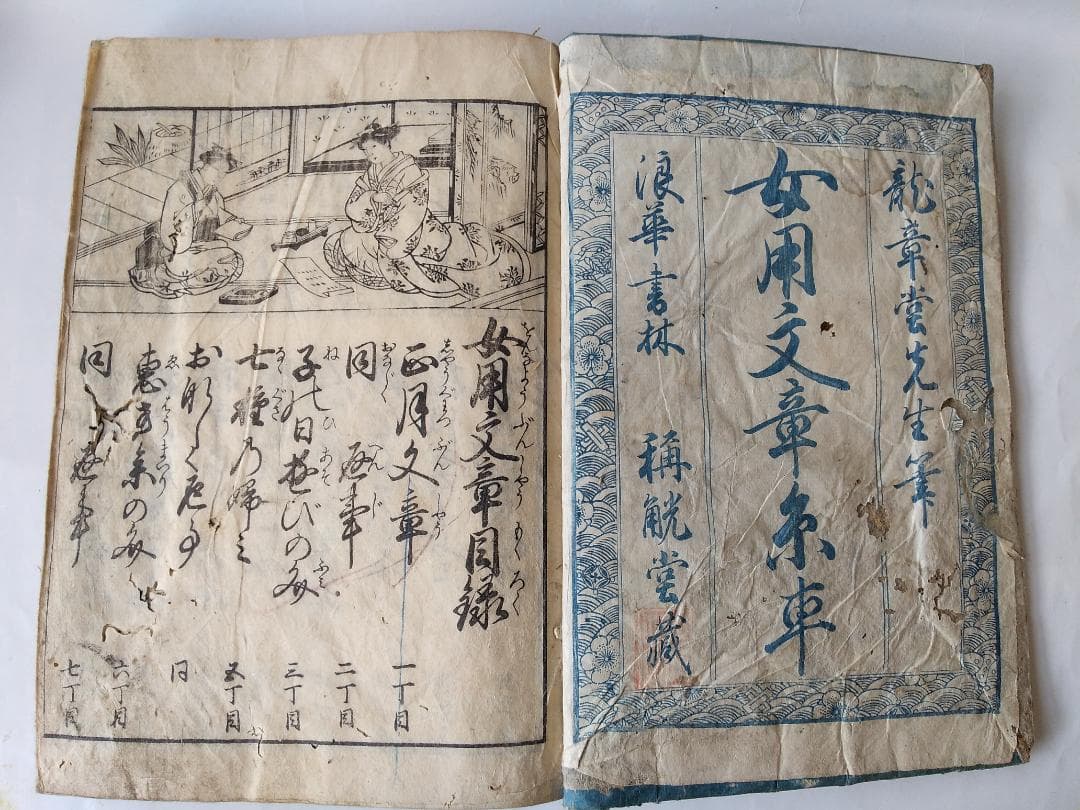 龍章堂先生筆
女用文章糸車
浪華書林 稱觥堂藏
女用文章目録
正月文章 一丁目
同 返事 二丁目
子の日遊びの文 三丁目
七種乃婦ミ 五丁目
同
恵方参の文 六丁目
同 返事 七丁目